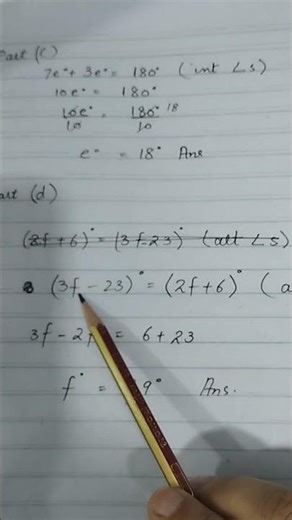 Part (C)
7e° + 3e° = 180° (int ∠s)
10e° = 180°
10e° = 180° 18
10 10
e° = 18° Ans
art (d)
(2f + 6)° = (3f-23)° (alt ∠s)
(3f - 23)° = (2f + 6)° (a
3f - 2f = 6 + 23
f° = 9° Ans.